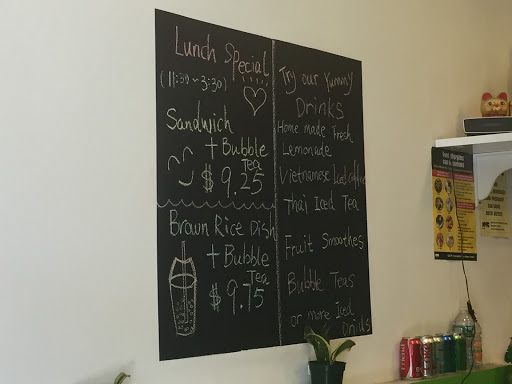 Lunch Special
(11:30~3:30)
Sandwich
+ Bubble
Tea
$ 9.25
Brown Rice Dish
+ Bubble
Tea
$ 9.75
Try our Yummy
Drinks
Home made Fresh
Lemonade
Vietnamese Iced Coffee
Thai Iced Tea
Fruit Smoothes
Bubble Teas
or more Iced